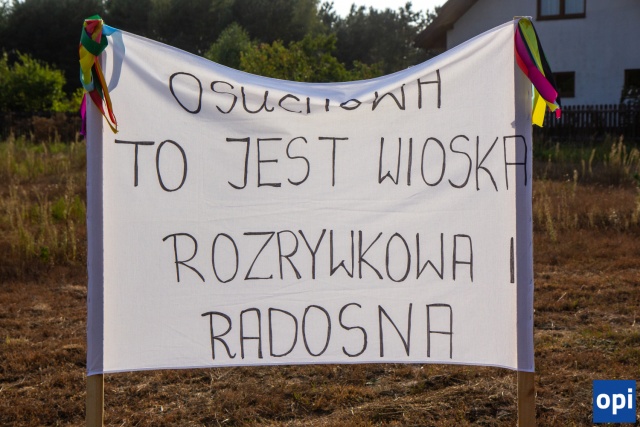 OSUCHOWA
TO JEST WIOSKA
ROZRYWKOWA I
RADOSNA
opi